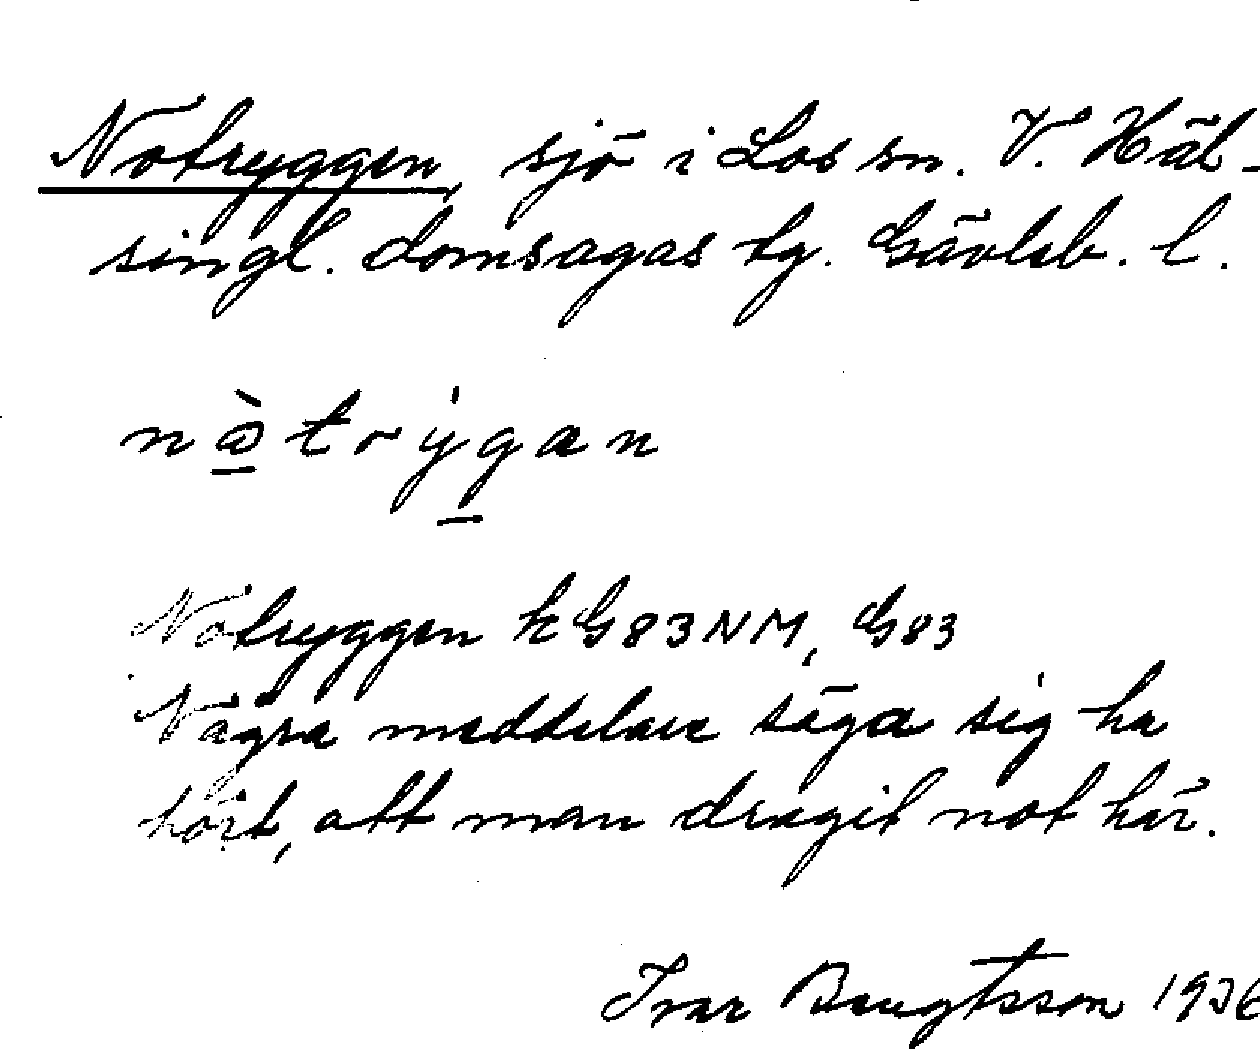 Notryggen, sjö i Los sn. V. Häl-
singl. domsagas tg. Gävleb. l.
Notryggen kG83NM, G83
Några meddelare säga sig ha
hört, att man dragit not här.
Ivar Bengtsson 1936